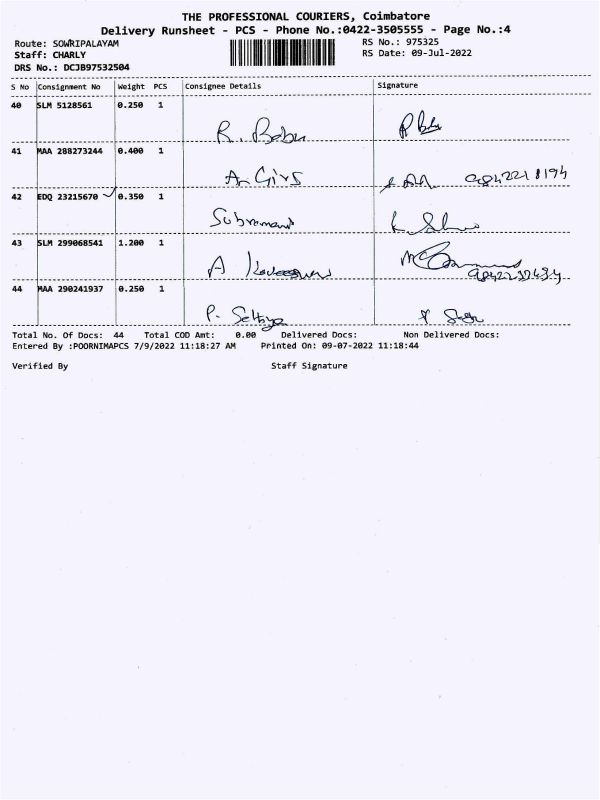 THE PROFESSIONAL COURIERS, Coimbatore
Delivery Runsheet - PCS - Phone No.:0422-3505555 - Page No.:4
Route: SOWRIPALAYAM
RS No.: 975325
Staff: CHARLY
RS Date: 09-Jul-2022
DRS No.: DCJB97532504
S No Consignment No Weight PCS Consignee Details Signature
40 SLM 5128561 0.250 1
R. Babu
41 MAA 288273244 0.400 1
A. Giri
42 EDQ 23215670 0.350 1
Subramani
43 SLM 299068541 1.200 1
A
44 MAA 290241937 0.250 1
P.
Total No. Of Docs: 44 Total COD Amt: 0.00 Delivered Docs: Non Delivered Docs:
Entered By :POORNIMAPCS 7/9/2022 11:18:27 AM Printed On: 09-07-2022 11:18:44
Verified By Staff Signature